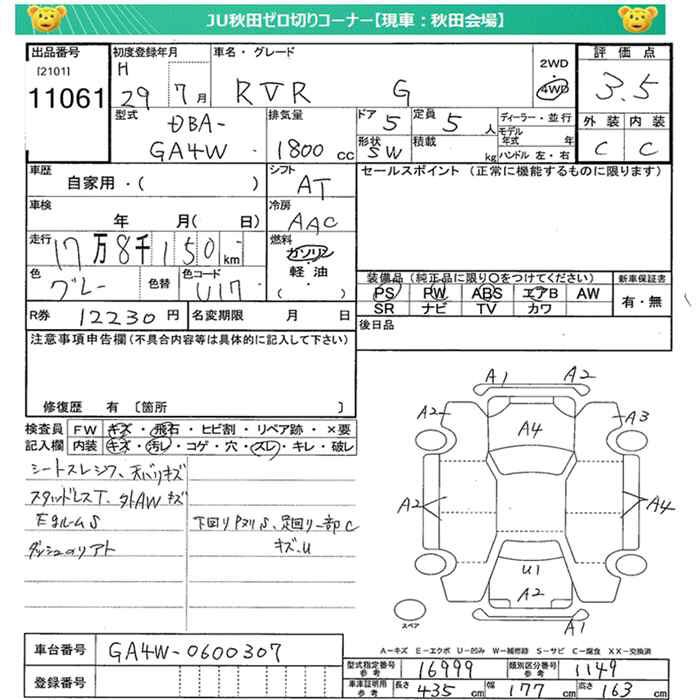 JU秋田ゼロ切りコーナー【現車：秋田会場】
出品番号
[2101]
11061
初度登録年月
H
29 7 月
車名・グレード
RVR G
2WD
4WD
評価点
3.5
外装 内装
C C
型式
DBA-
GA4W
排気量
1800 cc
ドア 5
定員 5 人
形状 SW
積載 kg
ディーラー・並行
モデル年式 年
ハンドル 左・右
車歴
自家用・( )
シフト
AT
セールスポイント (正常に機能するものに限ります)
車検
年 月( 日)
冷房
AAC
走行
17万8千150km
燃料
ガソリン
軽油
( ・ )
色
グレー
色替
色コード
U17
装備品 (純正品に限り○をつけてください)
PS PW ABS エアB AW
SR ナビ TV カワ
新車保証書
有・無
R券 12230 円
名変期限 月 日
後日品
注意事項申告欄(不具合内容等は具体的に記入して下さい)
修復歴 有 [箇所 ]
検査員記入欄
FW キズ・飛石・ヒビ割・リペア跡・×要
内装 キズ・汚レ・コゲ・穴・スレ・キレ・破レ
シートスレシワ、天バリキズ
スタッドレスT、外AWキズ
EgルームS
下回りPヌリS、足回り一部C
キズ.U
A1 A2
A2 A4 A3
A2 A4
U1
A2
A1
スペア
A-キズ E-エクボ U-凹み W-補修跡 S-サビ C-腐食 XX-交換済
車台番号 GA4W-0600307
登録番号
型式指定番号 参考 16999
類別区分番号 参考 1149
車庫証明用 参考 長さ 435 cm 幅 177 cm 高さ 163 cm